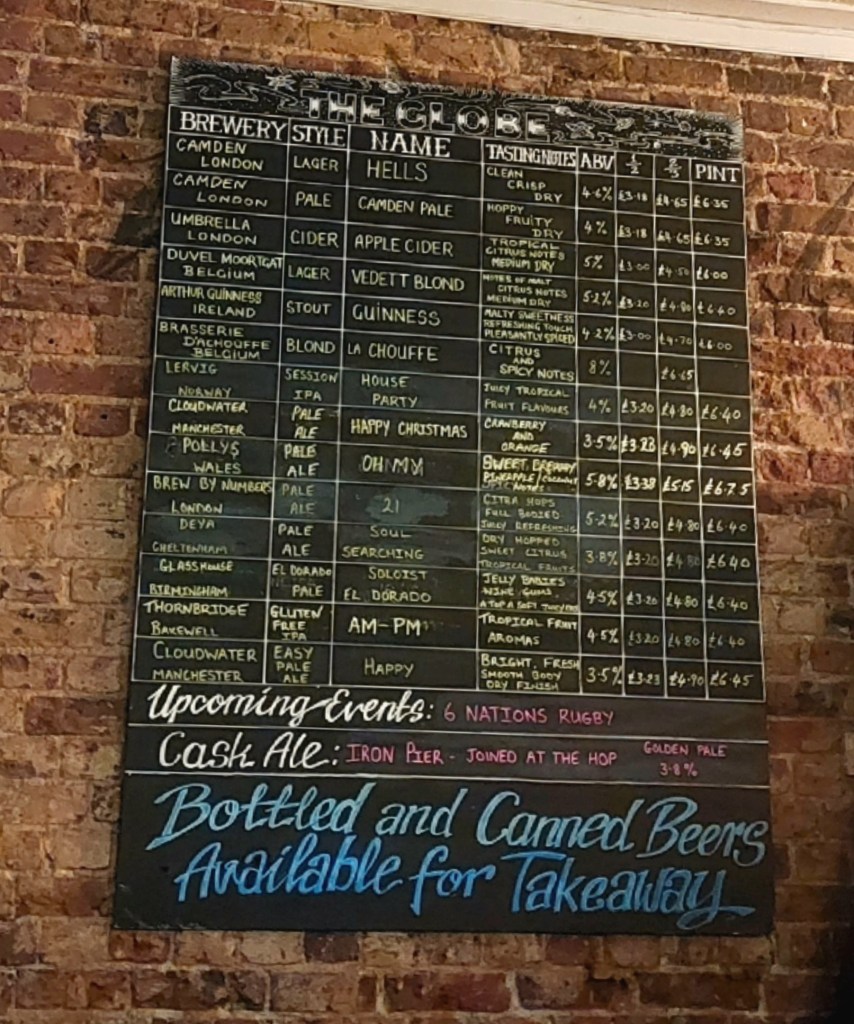 THE GLOBE
BREWERY STYLE NAME TASTING NOTES ABV 1/2 2/3 PINT
CAMDEN LONDON LAGER HELLS CLEAN CRISP DRY 4.6% £3.18 £4.65 £6.35
CAMDEN LONDON PALE CAMDEN PALE HOPPY FRUITY DRY 4% £3.18 £4.65 £6.35
UMBRELLA LONDON CIDER APPLE CIDER TROPICAL CITRUS NOTES MEDIUM DRY 5% £3.00 £4.50 £6.00
DUVEL MOORTGAT BELGIUM LAGER VEDETT BLOND NOTES OF MALT CITRUS NOTES MEDIUM DRY 5.2% £3.20 £4.80 £6.40
ARTHUR GUINNESS IRELAND STOUT GUINNESS MALTY SWEETNESS REFRESHING TOUCH PLEASANTLY SPICED 4.2% £3.00 £4.70 £6.00
BRASSERIE D'ACHOUFFE BELGIUM BLOND LA CHOUFFE CITRUS AND SPICY NOTES 8% £6.65
LERVIG NORWAY SESSION IPA HOUSE PARTY JUICY TROPICAL FRUIT FLAVOURS 4% £3.20 £4.80 £6.40
CLOUDWATER MANCHESTER PALE ALE HAPPY CHRISTMAS CRANBERRY AND ORANGE 3.5% £3.23 £4.90 £6.45
POLLYS WALES PALE ALE OH MY SWEET, CREAMY PINEAPPLE/COCONUT NOTES 5.8% £3.38 £5.15 £6.75
BREW BY NUMBERS LONDON PALE ALE 21 CITRA HOPS FULL BODIED JUICY REFRESHING 5.2% £3.20 £4.80 £6.40
DEYA CHELTENHAM PALE ALE SOUL SEARCHING DRY HOPPED SWEET CITRUS TROPICAL FRUITS 3.8% £3.20 £4.80 £6.40
GLASSHOUSE BIRMINGHAM EL DORADO PALE SOLOIST EL DORADO JELLY BABIES WINE GUMS ATOP A SOFT 4.5% £3.20 £4.80 £6.40
THORNBRIDGE BAKEWELL GLUTEN FREE IPA AM-PM TROPICAL FRUIT AROMAS 4.5% £3.20 £4.80 £6.40
CLOUDWATER MANCHESTER EASY PALE ALE HAPPY BRIGHT, FRESH SMOOTH BODY DRY FINISH 3.5% £3.23 £4.90 £6.45
Upcoming Events: 6 NATIONS RUGBY
Cask Ale: IRON PIER - JOINED AT THE HOP GOLDEN PALE 3.8%
Bottled and Canned Beers
Available for Takeaway